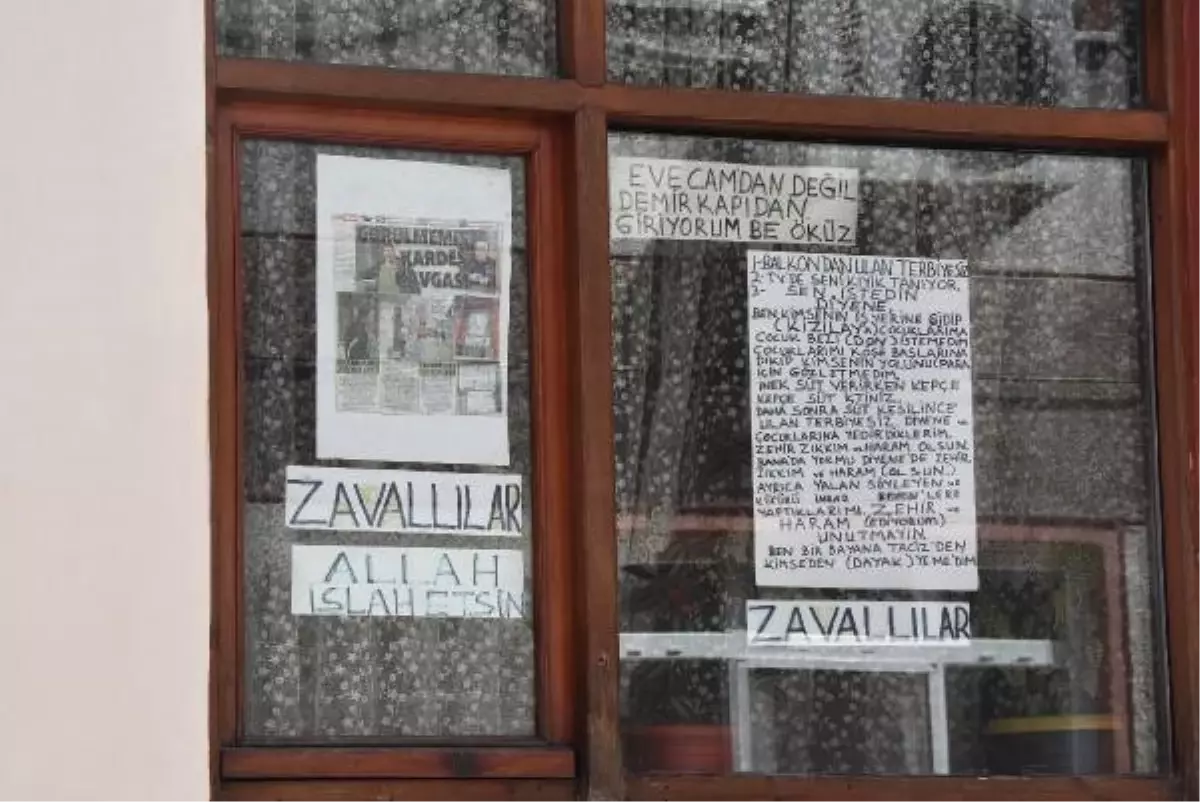 GÖRÜLMEMİŞ
KARDEŞ
KAVGASI
ZAVALLILAR
ALLAH
ISLAH ETSİN
EVE CAMDAN DEĞİL
DEMİR KAPIDAN
GİRİYORUM BE ÖKÜZ
1-BALKONDAN ULAN TERBİYESİZ
2-TV'DE SENİ KIYIK TANIYOR.
3- SEN İSTEDİN
DİYENE
BEN KİMSENİN İŞ YERİNE GİDİP
(KIZILAY'A) ÇOCUKLARIMA
ÇOCUK BEZİ (DON) İSTEMEDİM
ÇOCUKLARIMI KÖŞE BAŞLARINA
DİKİP KİMSENİN YOLUNU (PARA
İÇİN GÖZLETMEDİM.
İNEK SÜT VERİRKEN KEPÇE
KEPÇE SÜT İÇTİNİZ.
DAHA SONRA SÜT KESİLİNCE
ULAN TERBİYESİZ DİYENE ve
ÇOCUKLARINA YEDİRDİKLERİM.
ZEHİR ZIKKIM ve HARAM OLSUN.
DİYENE'DE ZEHİR
ZIKKIM ve HARAM (OLSUN.)
AYRICA YALAN SÖYLEYEN ve
YAPTIKLARIMI. ZEHİR ve
HARAM (EDİYORUM)
UNUTMAYIN
BEN BİR BAYANA TACİZ'DEN
KİMSEDEN (DAYAK) YEMEDİM
ZAVALLILAR